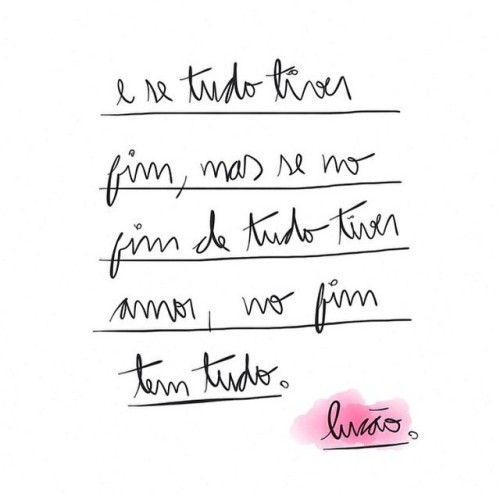 e se tudo tiver
fim, mas se no
fim de tudo tiver
amor, no fim
tem tudo.
lucão.